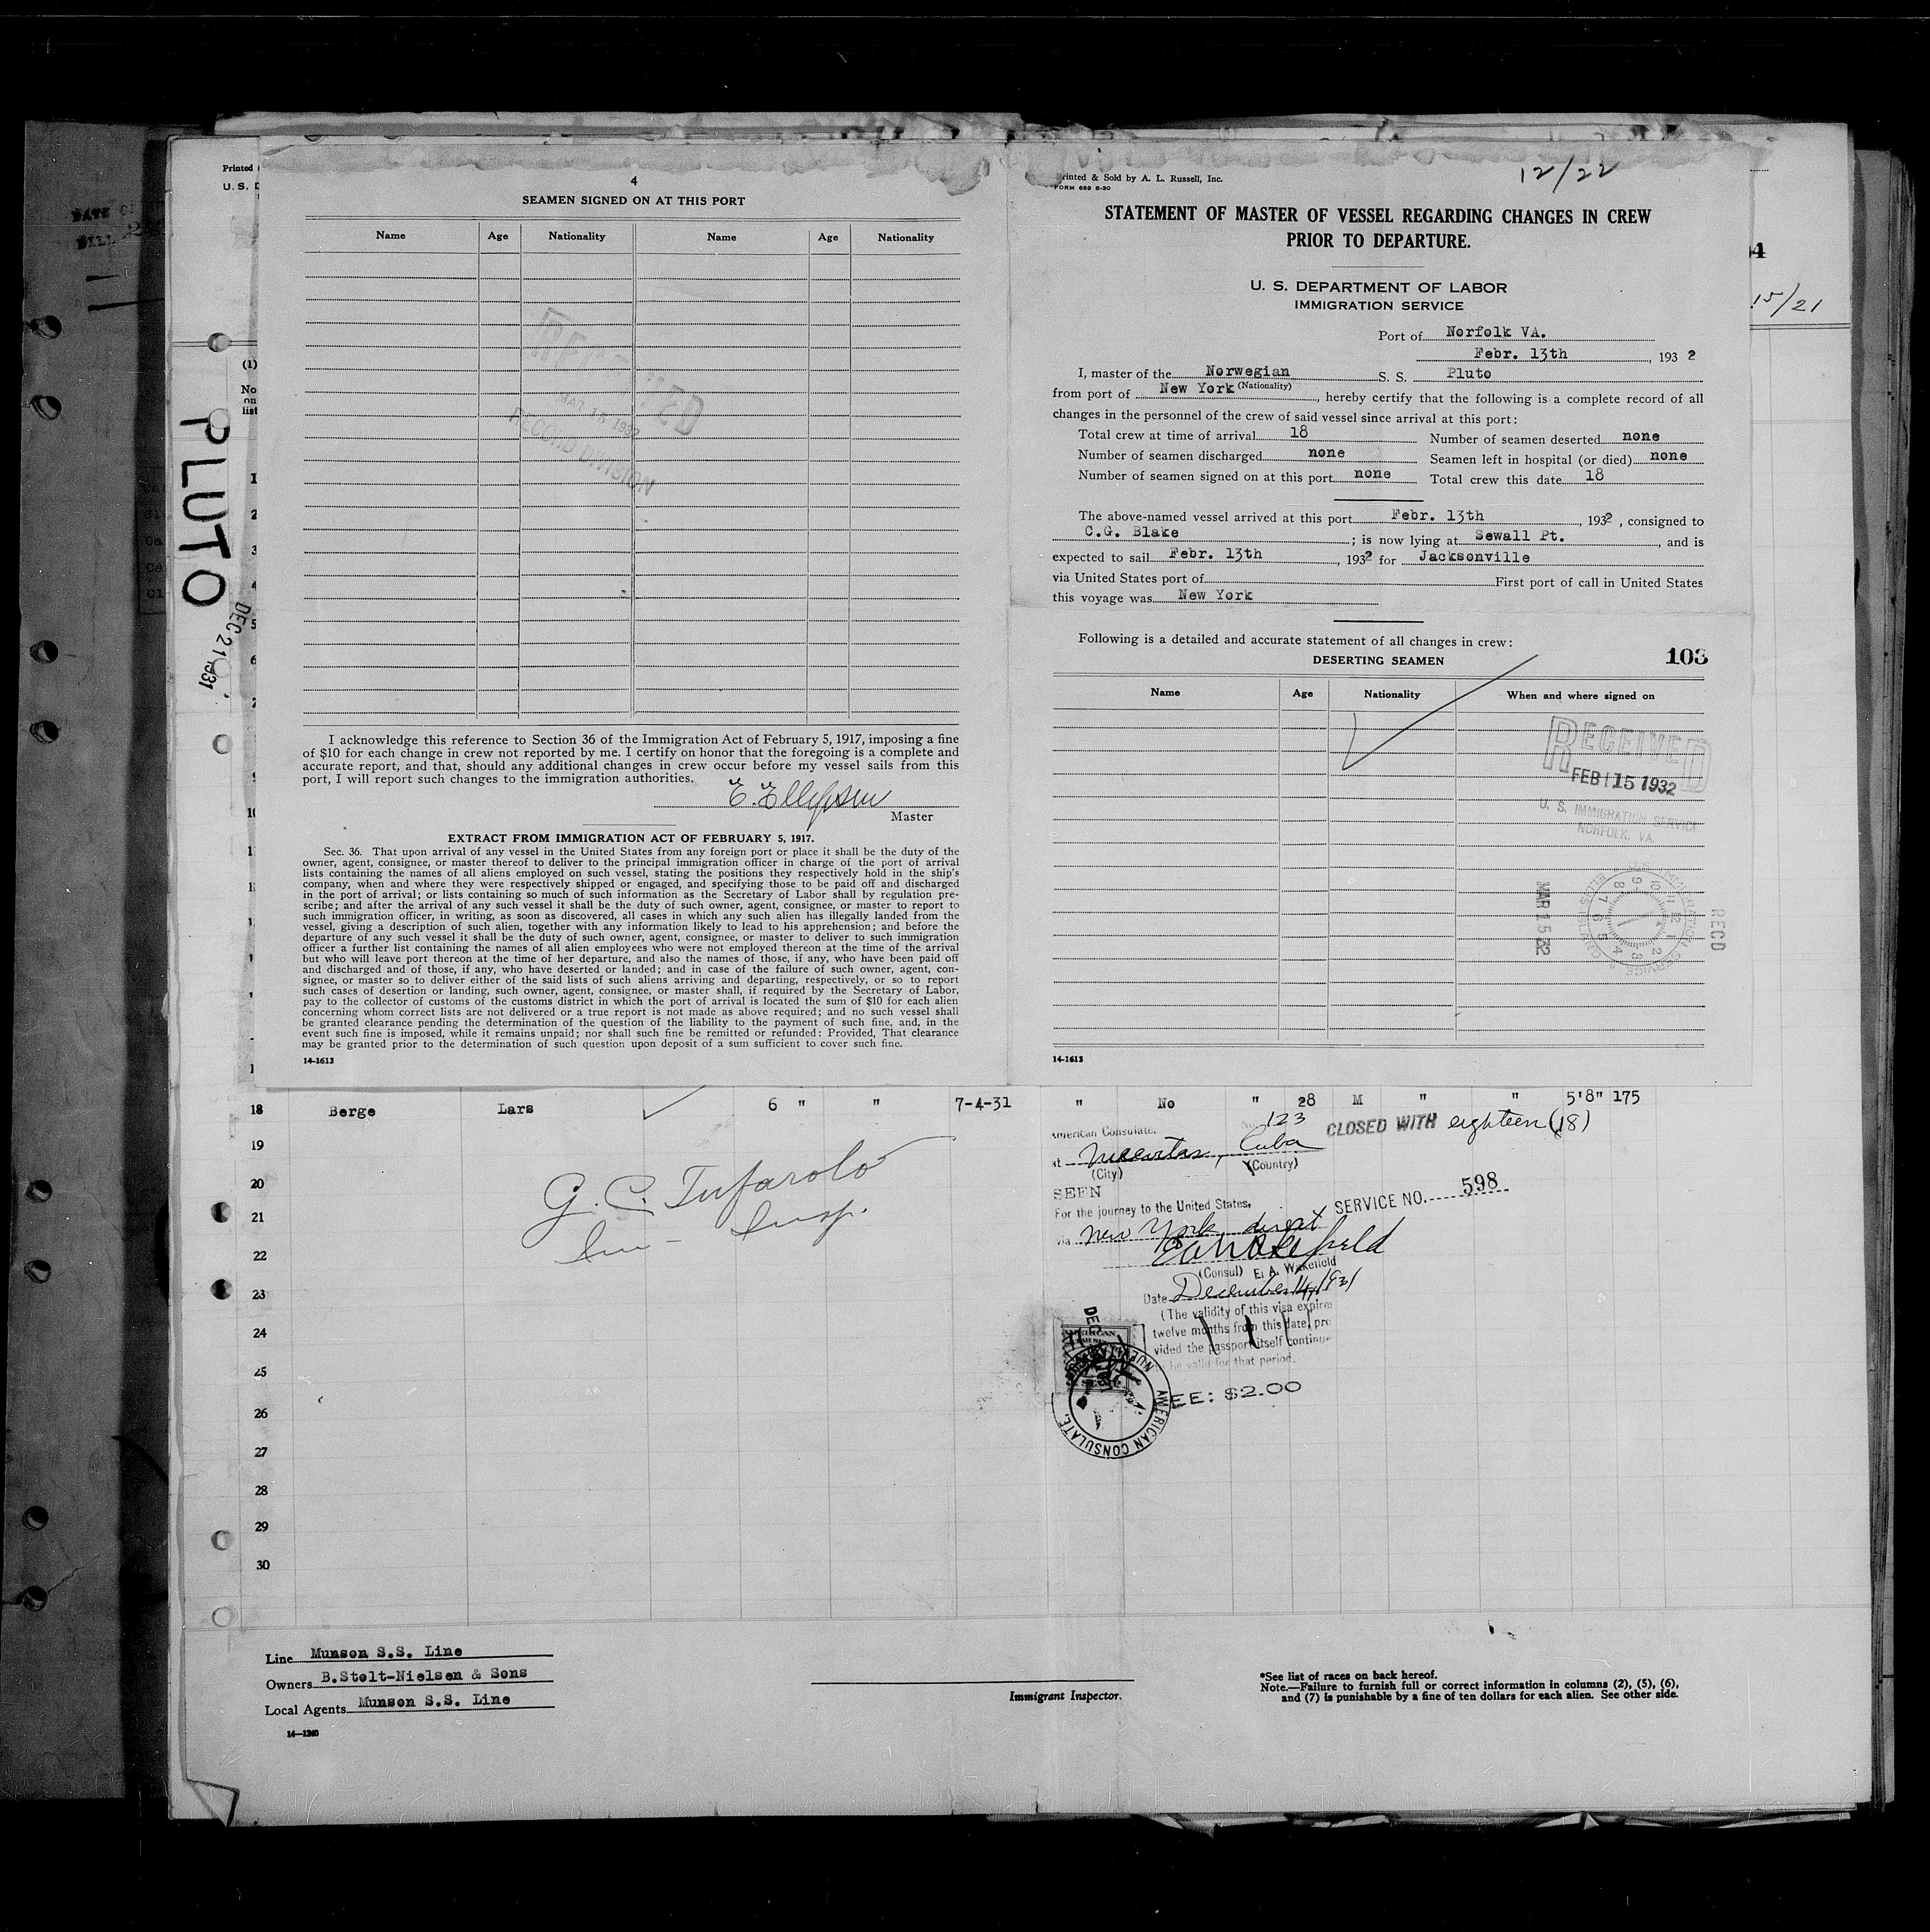 Printed
U. S. D
DATE OF
PLUTO
DEC 21 1931
4
SEAMEN SIGNED ON AT THIS PORT
Name Age Nationality Name Age Nationality
RECEIVED
MAR 15 1932
RECORD DIVISION
I acknowledge this reference to Section 36 of the Immigration Act of February 5, 1917, imposing a fine
of $10 for each change in crew not reported by me. I certify on honor that the foregoing is a complete and
accurate report, and that, should any additional changes in crew occur before my vessel sails from this
port, I will report such changes to the immigration authorities.
E. Ellefsen
Master
EXTRACT FROM IMMIGRATION ACT OF FEBRUARY 5, 1917.
Sec. 36. That upon arrival of any vessel in the United States from any foreign port or place it shall be the duty of the
owner, agent, consignee, or master thereof to deliver to the principal immigration officer in charge of the port of arrival
lists containing the names of all aliens employed on such vessel, stating the positions they respectively hold in the ship's
company, when and where they were respectively shipped or engaged, and specifying those to be paid off and discharged
in the port of arrival; or lists containing so much of such information as the Secretary of Labor shall by regulation pre-
scribe; and after the arrival of any such vessel it shall be the duty of such owner, agent, consignee, or master to report to
such immigration officer, in writing, as soon as discovered, all cases in which any such alien has illegally landed from the
vessel, giving a description of such alien, together with any information likely to lead to his apprehension; and before the
departure of any such vessel it shall be the duty of such owner, agent, consignee, or master to deliver to such immigration
officer a further list containing the names of all alien employees who were not employed thereon at the time of the arrival
but who will leave port thereon at the time of her departure, and also the names of those, if any, who have been paid off
and discharged and of those, if any, who have deserted or landed; and in case of the failure of such owner, agent, con-
signee, or master so to deliver either of the said lists of such aliens arriving and departing, respectively, or so to report
such cases of desertion or landing, such owner, agent, consignee, or master shall, if required by the Secretary of Labor,
pay to the collector of customs of the customs district in which the port of arrival is located the sum of $10 for each alien
concerning whom correct lists are not delivered or a true report is not made as above required; and no such vessel shall
be granted clearance pending the determination of the question of the liability to the payment of such fine, and, in the
event such fine is imposed, while it remains unpaid; nor shall such fine be remitted or refunded: Provided, That clearance
may be granted prior to the determination of such question upon deposit of a sum sufficient to cover such fine.
14-1613
Printed & Sold by A. L. Russell, Inc.
FORM 689 6-30
12/22
STATEMENT OF MASTER OF VESSEL REGARDING CHANGES IN CREW
PRIOR TO DEPARTURE.
U. S. DEPARTMENT OF LABOR
IMMIGRATION SERVICE
15/21
Port of Norfolk VA.
Febr. 13th, 1932
I, master of the Norwegian S. S. Pluto
from port of New York (Nationality), hereby certify that the following is a complete record of all
changes in the personnel of the crew of said vessel since arrival at this port:
Total crew at time of arrival 18 Number of seamen deserted none
Number of seamen discharged none Seamen left in hospital (or died) none
Number of seamen signed on at this port none Total crew this date 18
The above-named vessel arrived at this port Febr. 13th, 1932, consigned to
C.G. Blake; is now lying at Sewall Pt., and is
expected to sail Febr. 13th, 1932 for Jacksonville
via United States port of First port of call in United States
this voyage was New York
Following is a detailed and accurate statement of all changes in crew:
DESERTING SEAMEN 103
Name Age Nationality When and where signed on
RECEIVED
FEB 15 1932
U. S. IMMIGRATION SERVICE
NORFOLK, VA.
MAR 15 32
RECD
14-1613
18 Berge Lars 6 " " 7-4-31 " No " 28 M " " 5'8" 175
19
20
21
22
23
24
25
26
27
28
29
30
G. C. Tufarolo
Imm- Insp.
American Consulate. No. 123 CLOSED WITH eighteen (18)
at Nuevitas, Cuba
(City) (Country)
SEEN
For the journey to the United States, SERVICE NO. 598
via New York direct
EA Wakefield
(Consul) E. A. Wakefield
Date December 14, 1931
(The validity of this visa expires
twelve months from this date, pro
vided the passport itself continue
be valid for that period.
EE: $2.00
AMERICAN CONSULATE,
Line Munson S.S. Line
Owners B.Stolt-Nielsen & Sons
Local Agents Munson S.S. Line
14—1240
Immigrant Inspector.
*See list of races on back hereof.
Note.—Failure to furnish full or correct information in columns (2), (5), (6),
and (7) is punishable by a fine of ten dollars for each alien. See other side.